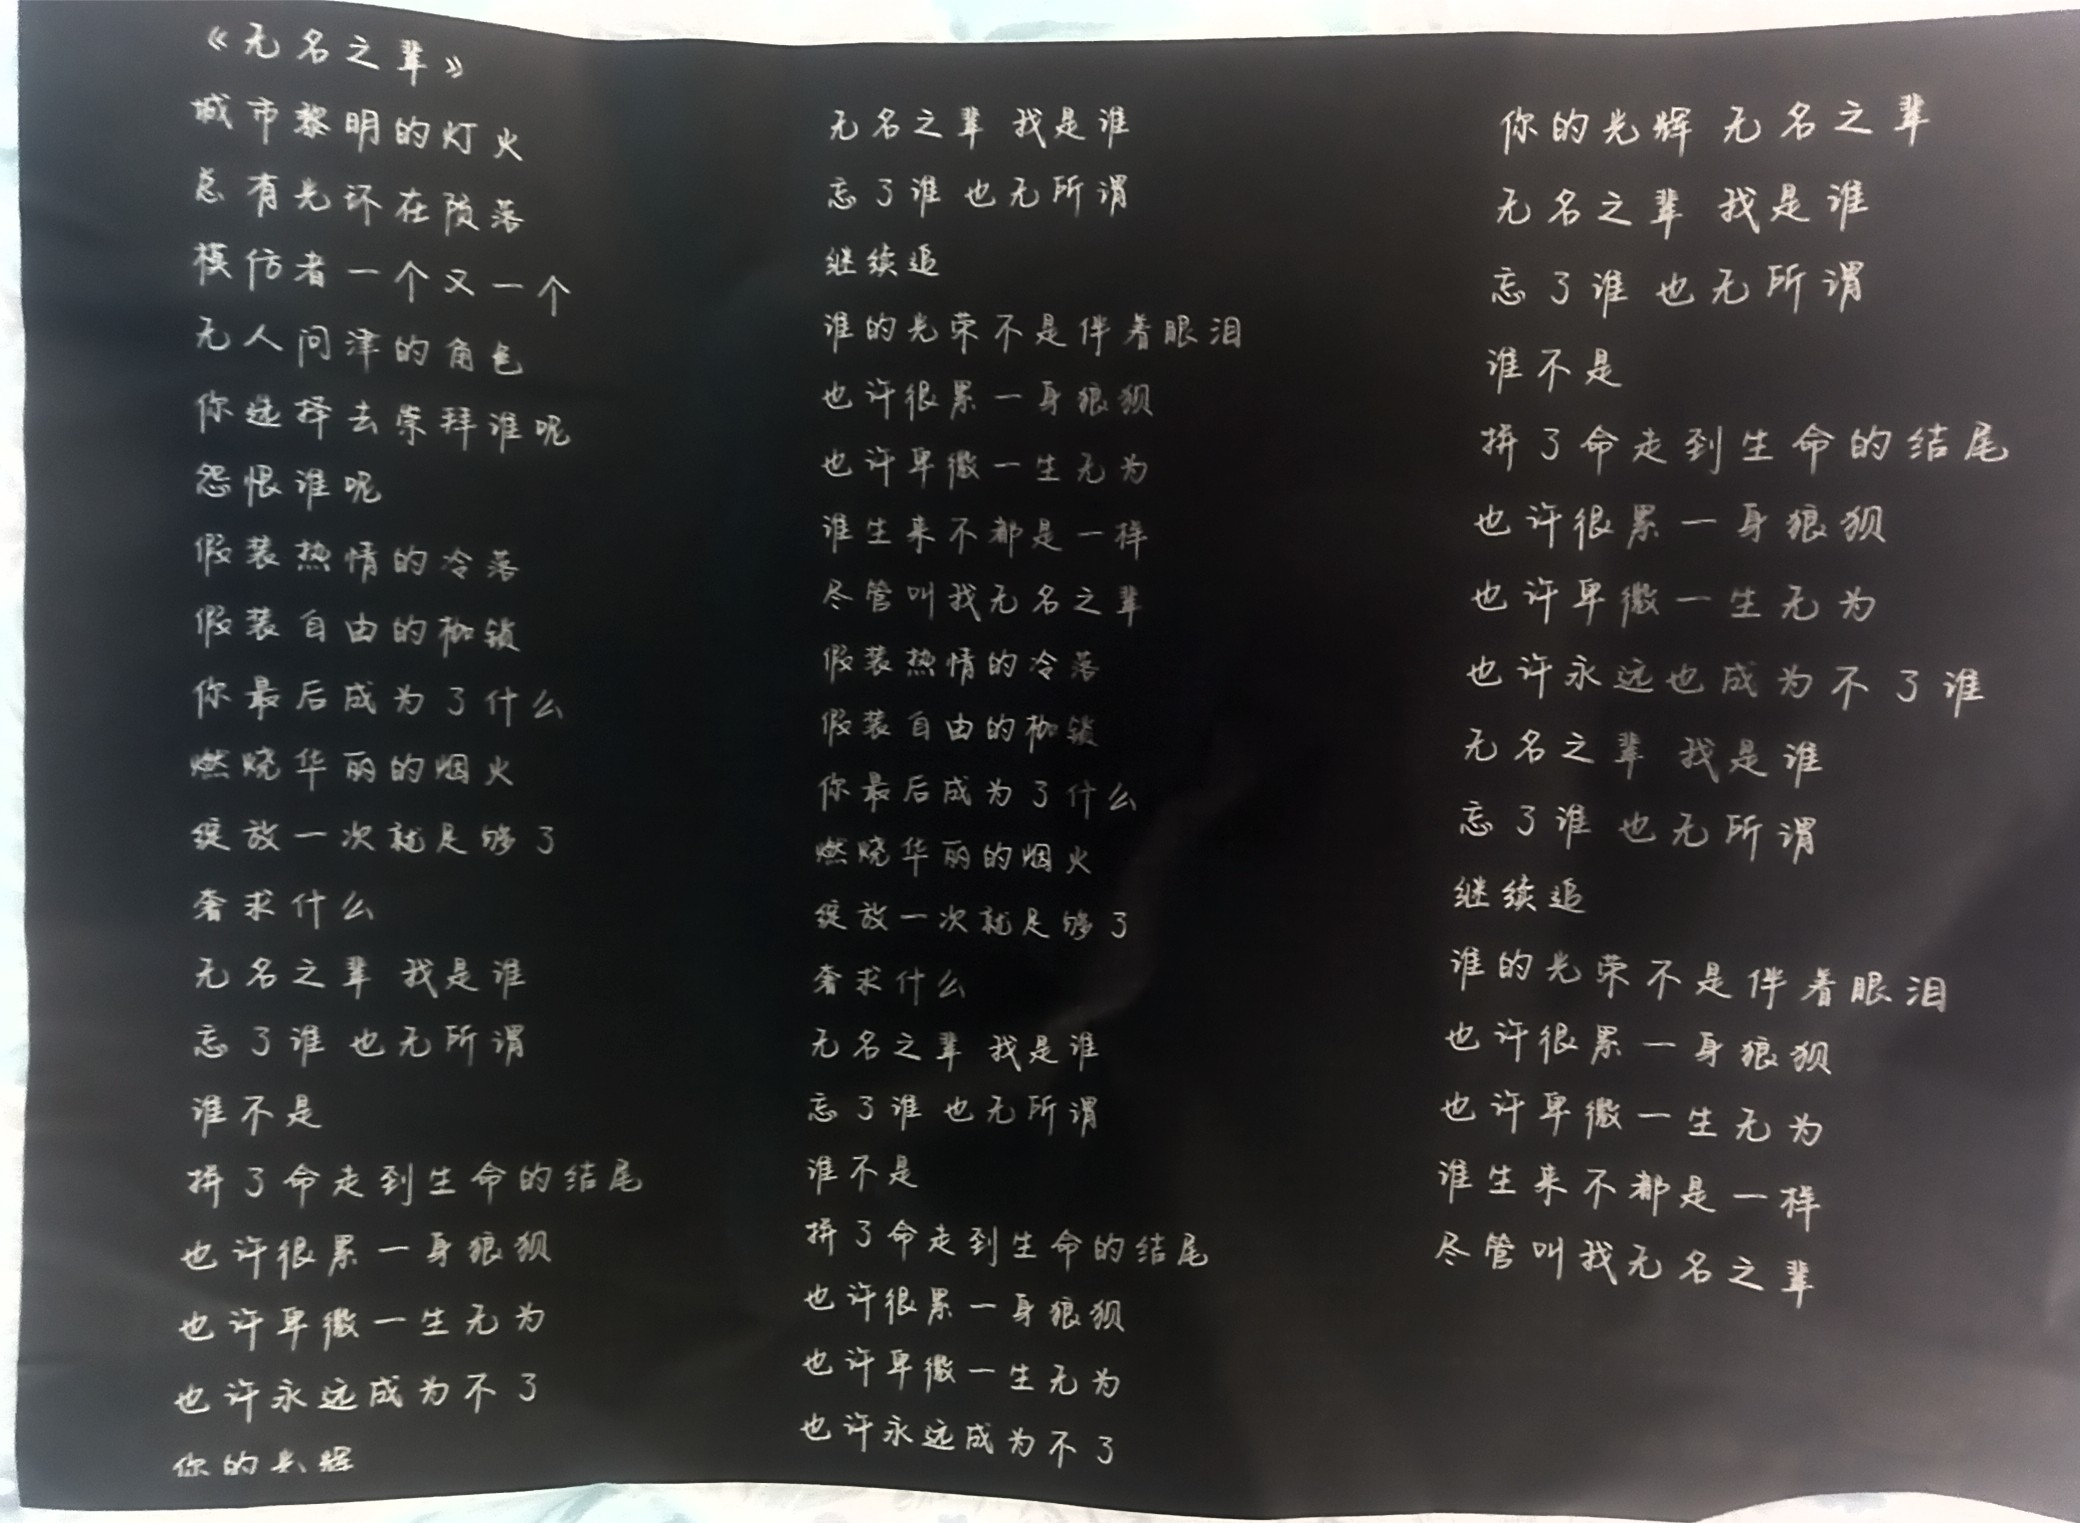 《无名之辈》
城市黎明的灯火
总有光环在陨落
模仿者一个又一个
无人问津的角色
你选择去崇拜谁呢
怨恨谁呢
假装热情的冷落
假装自由的枷锁
你最后成为了什么
燃烧华丽的烟火
绽放一次就足够了
奢求什么
无名之辈 我是谁
忘了谁 也无所谓
谁不是
拼了命走到生命的结尾
也许很累一身狼狈
也许卑微一生无为
也许永远成为不了
你的光辉
无名之辈 我是谁
忘了谁 也无所谓
继续追
谁的光荣不是伴着眼泪
也许很累一身狼狈
也许卑微一生无为
谁生来不都是一样
尽管叫我无名之辈
假装热情的冷落
假装自由的枷锁
你最后成为了什么
燃烧华丽的烟火
绽放一次就足够了
奢求什么
无名之辈 我是谁
忘了谁 也无所谓
谁不是
拼了命走到生命的结尾
也许很累一身狼狈
也许卑微一生无为
也许永远成为不了
你的光辉 无名之辈
无名之辈 我是谁
忘了谁 也无所谓
谁不是
拼了命走到生命的结尾
也许很累一身狼狈
也许卑微一生无为
也许永远也成为不了谁
无名之辈 我是谁
忘了谁 也无所谓
继续追
谁的光荣不是伴着眼泪
也许很累一身狼狈
也许卑微一生无为
谁生来不都是一样
尽管叫我无名之辈